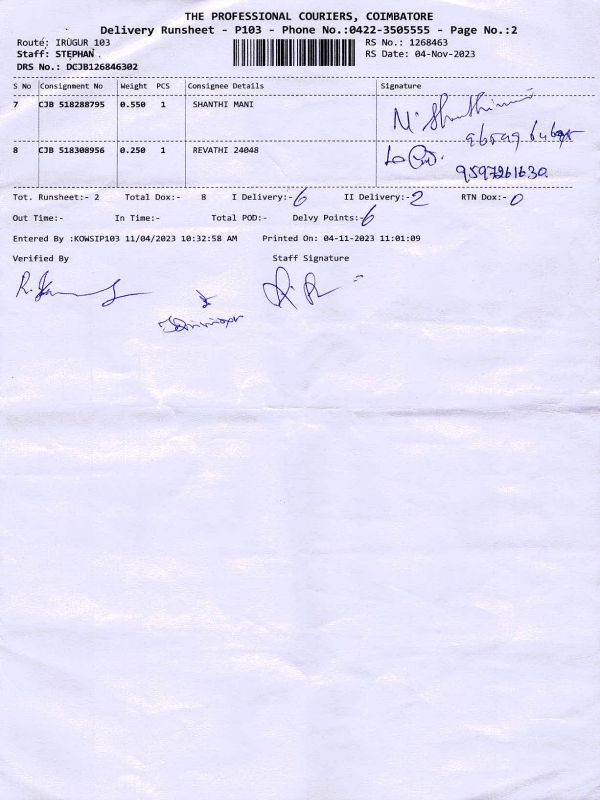 THE PROFESSIONAL COURIERS, COIMBATORE
Delivery Runsheet - P103 - Phone No.:0422-3505555 - Page No.:2
Route: IRUGUR 103 RS No.: 1268463
Staff: STEPHAN . RS Date: 04-Nov-2023
DRS No.: DCJB126846302
S No Consignment No Weight PCS Consignee Details Signature
7 CJB 518288795 0.550 1 SHANTHI MANI
8 CJB 518308956 0.250 1 REVATHI 24048
9597261630
Tot. Runsheet:- 2 Total Dox:- 8 I Delivery:- 6 II Delivery:- 2 RTN Dox:- 0
Out Time:- In Time:- Total POD:- Delvy Points:- 6
Entered By :KOWSIP103 11/04/2023 10:32:58 AM Printed On: 04-11-2023 11:01:09
Verified By Staff Signature